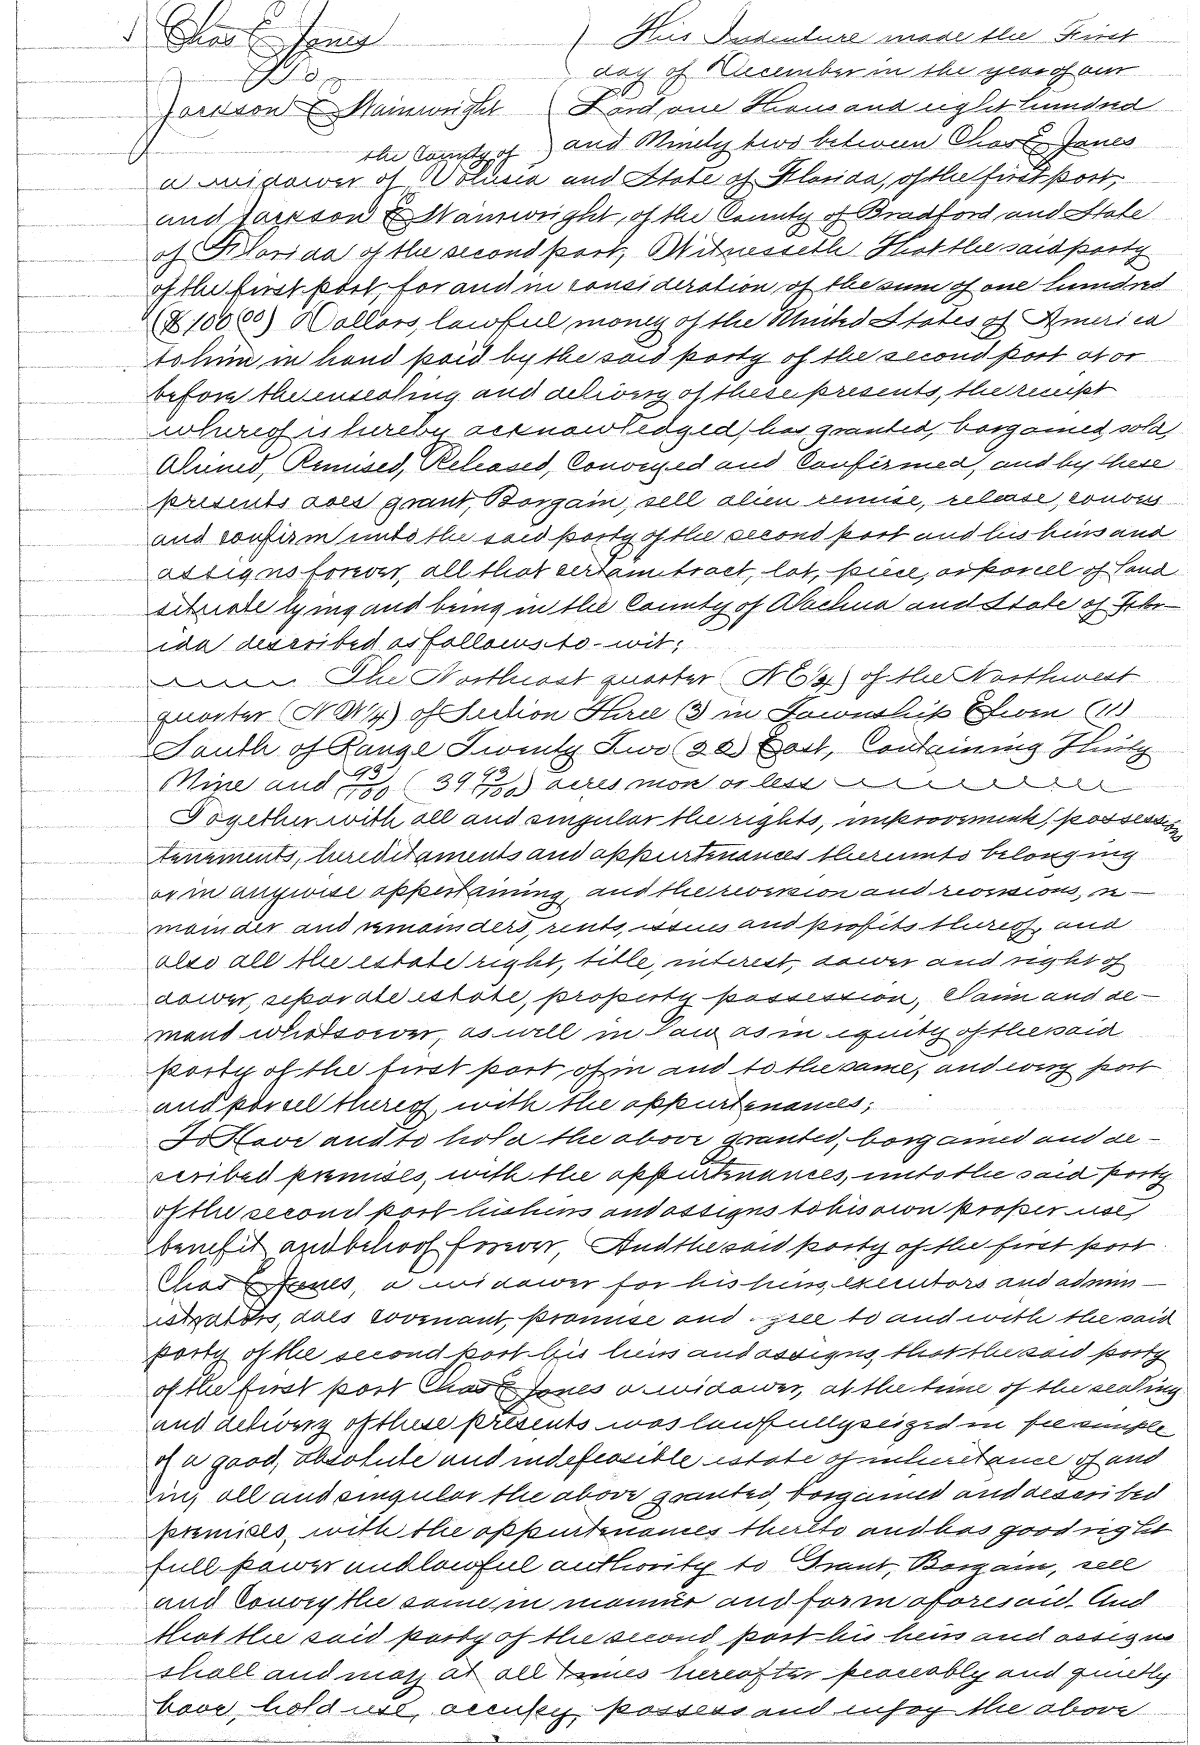 Chas E Jones
To
Jackson E Wainwright
This Indenture made the First
day of December in the year of our
Lord one Thousand eight hundred
and Ninety two between Chas E Jones
the County of
a widower of Volusia and State of Florida, of the first part,
and Jackson E Wainwright, of the County of Bradford and State
of Florida of the second part, Witnesseth That the said party
of the first part, for and in consideration of the sum of one hundred
($100 00) Dollars, lawful money of the United States of America
to him in hand paid by the said party of the second part at or
before the ensealing and delivery of these presents, the receipt
whereof is hereby acknowledged, has granted, bargained, sold,
Aliened, Remised, Released, Conveyed and Confirmed, and by these
presents does grant, Bargain, sell alien remise, release, convey
and confirm unto the said party of the second part and his heirs and
assigns forever, all that certain tract, lot, piece, or parcel of land
situate lying and being in the County of Alachua and State of Flor-
ida described as follows to-wit;
The Northeast quarter (NE 1/4) of the Northwest
quarter (NW 1/4) of Section Three (3) in Township Eleven (11)
South of Range Twenty Two (22) East, Containing Thirty
Nine and 93/100 (39 93/100) acres more or less
Together with all and singular the rights, improvements, possessions
tenements, hereditaments and appurtenances thereunto belonging
or in anywise appertaining, and the reversion and reversions, re-
mainder and remainders, rents, issues and profits thereof, and
also all the estate right, title, interest, dower and right of
dower, separate estate, property possession, claim and de-
mand whatsoever, as well in law as in equity of the said
party of the first part, of in and to the same, and every part
and parcel thereof, with the appurtenances;
To Have and to hold the above granted, bargained and de-
scribed premises, with the appurtenances, unto the said party
of the second part his heirs and assigns to his own proper use,
benefit and behoof forever, And the said party of the first part
Chas E Jones, a widower for his heirs, executors and admin-
istrators, does covenant, promise and agree to and with the said
party of the second part his heirs and assigns, that the said party
of the first part Chas E Jones a widower, at the time of the sealing
and delivery of these presents was lawfully seized in fee simple
of a good, absolute and indefeasible estate of inheritance of and
in, all and singular the above granted, bargained and described
premises, with the appurtenances thereto and has good right
full power and lawful authority to Grant, Bargain, sell
and Convey the same in manner and form aforesaid. And
that the said party of the second part his heirs and assigns
shall and may at all times hereafter peaceably and quietly
have, hold use, occupy, possess and enjoy the above